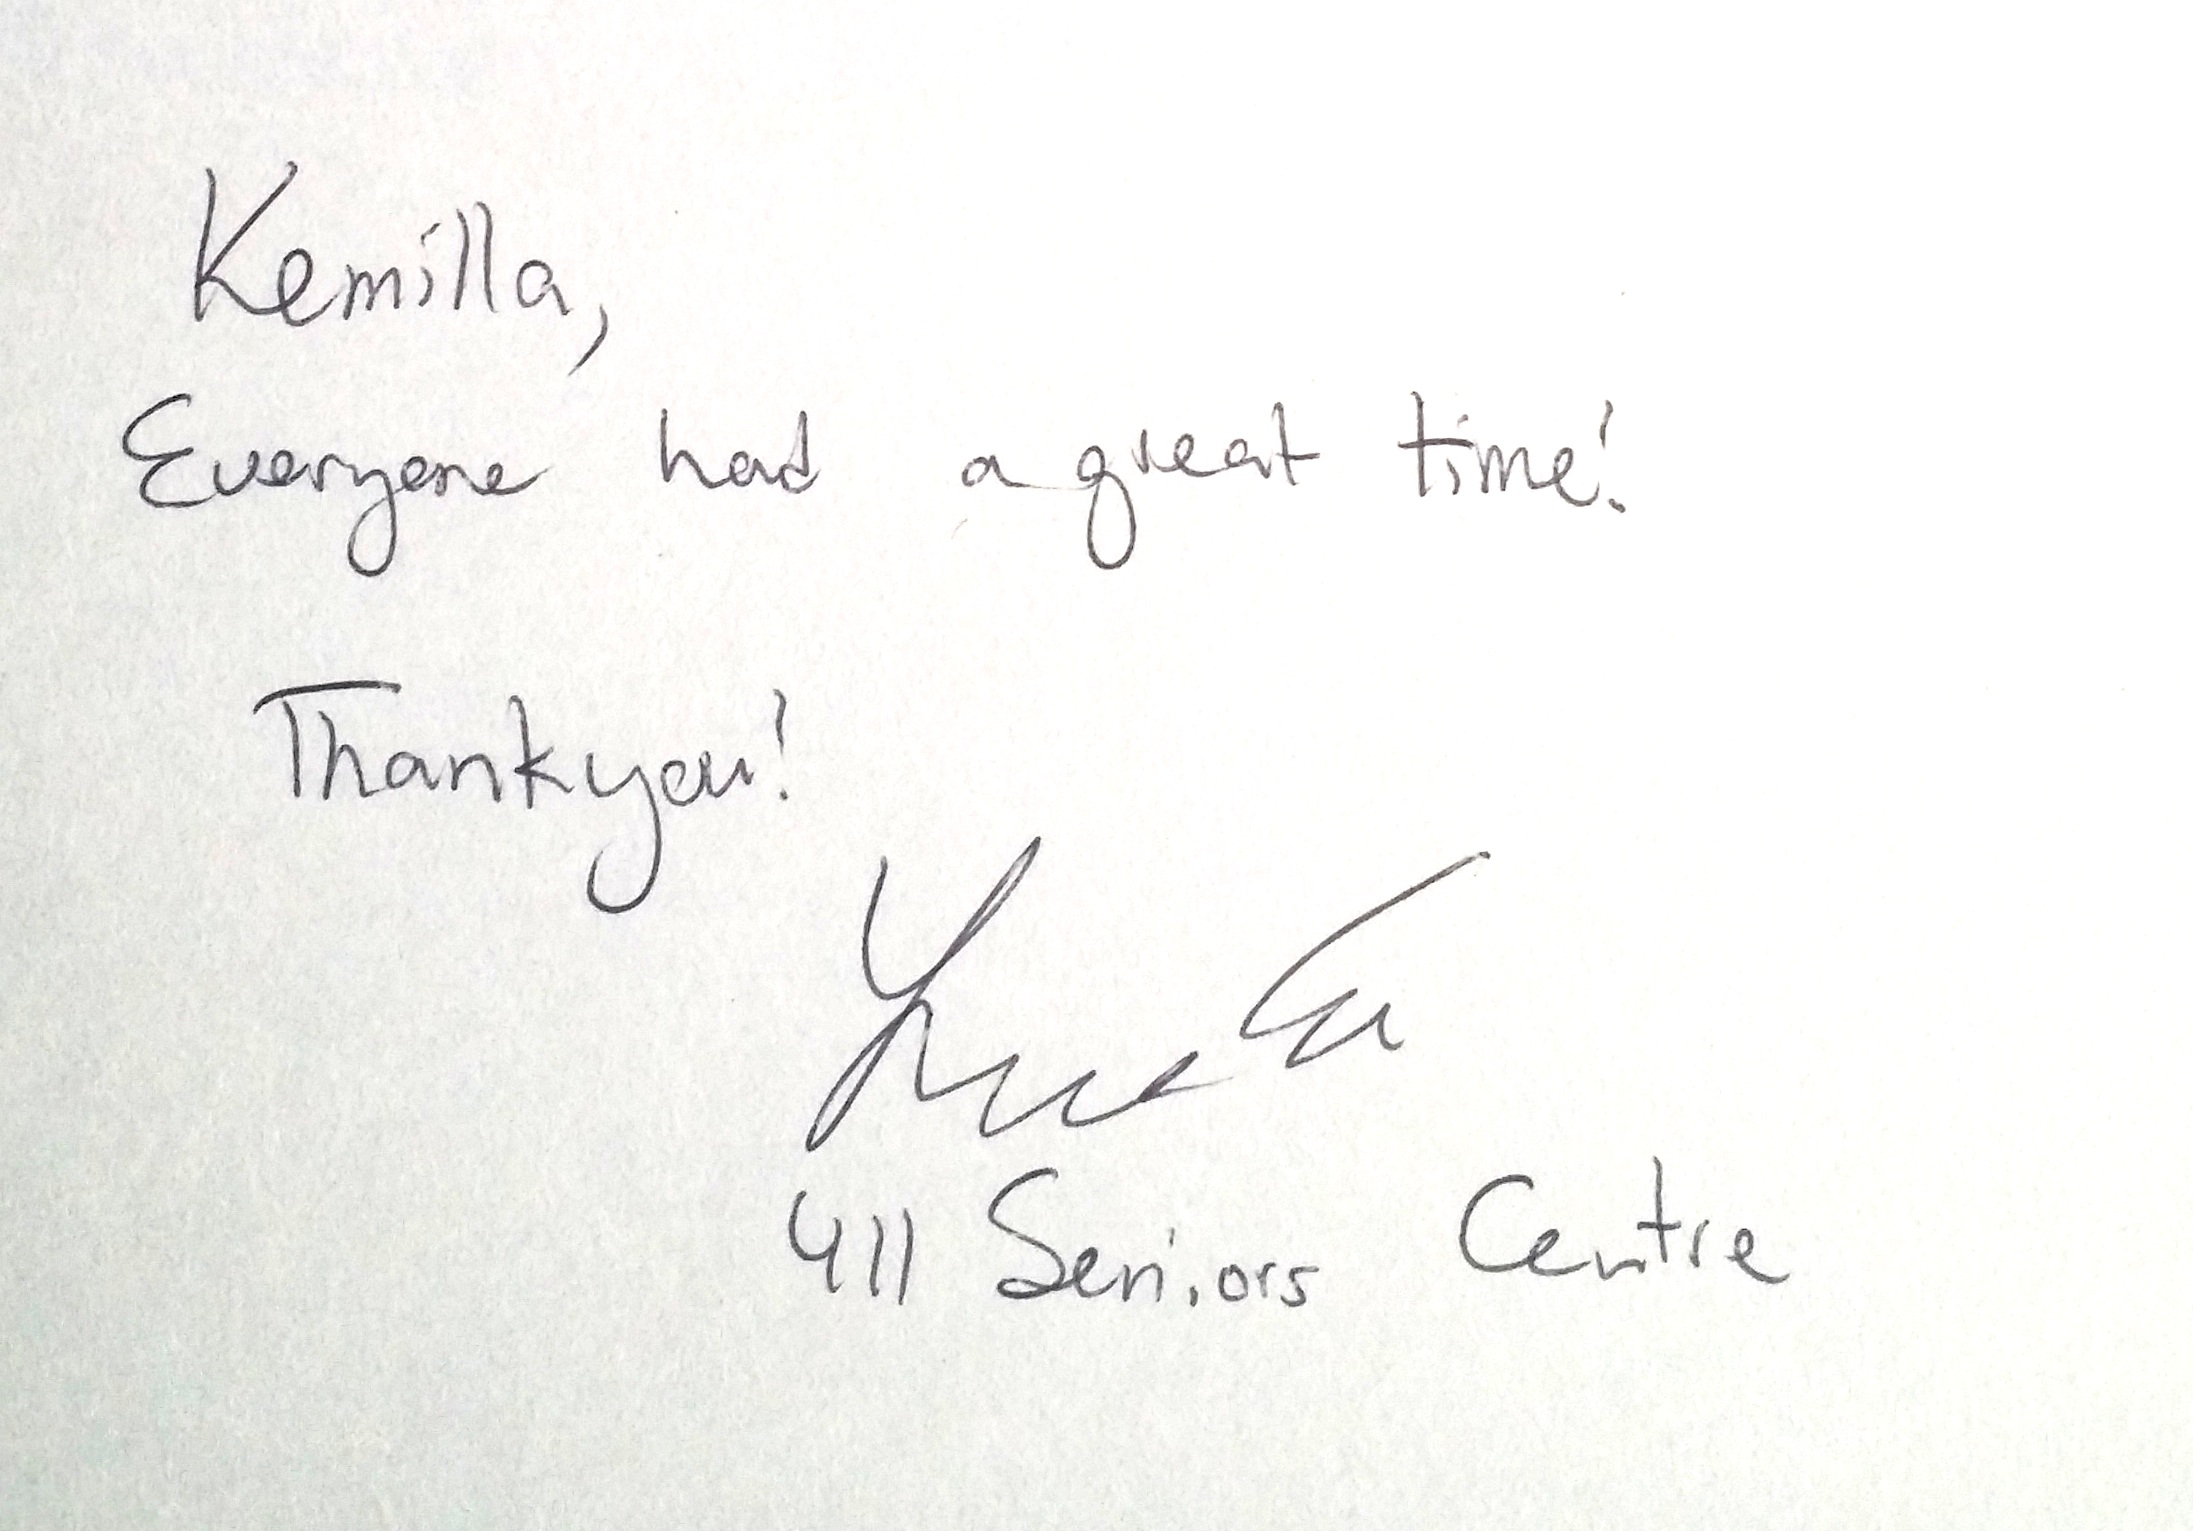 Kemilla,
Everyone had a great time!
Thank you!
411 Seniors Centre